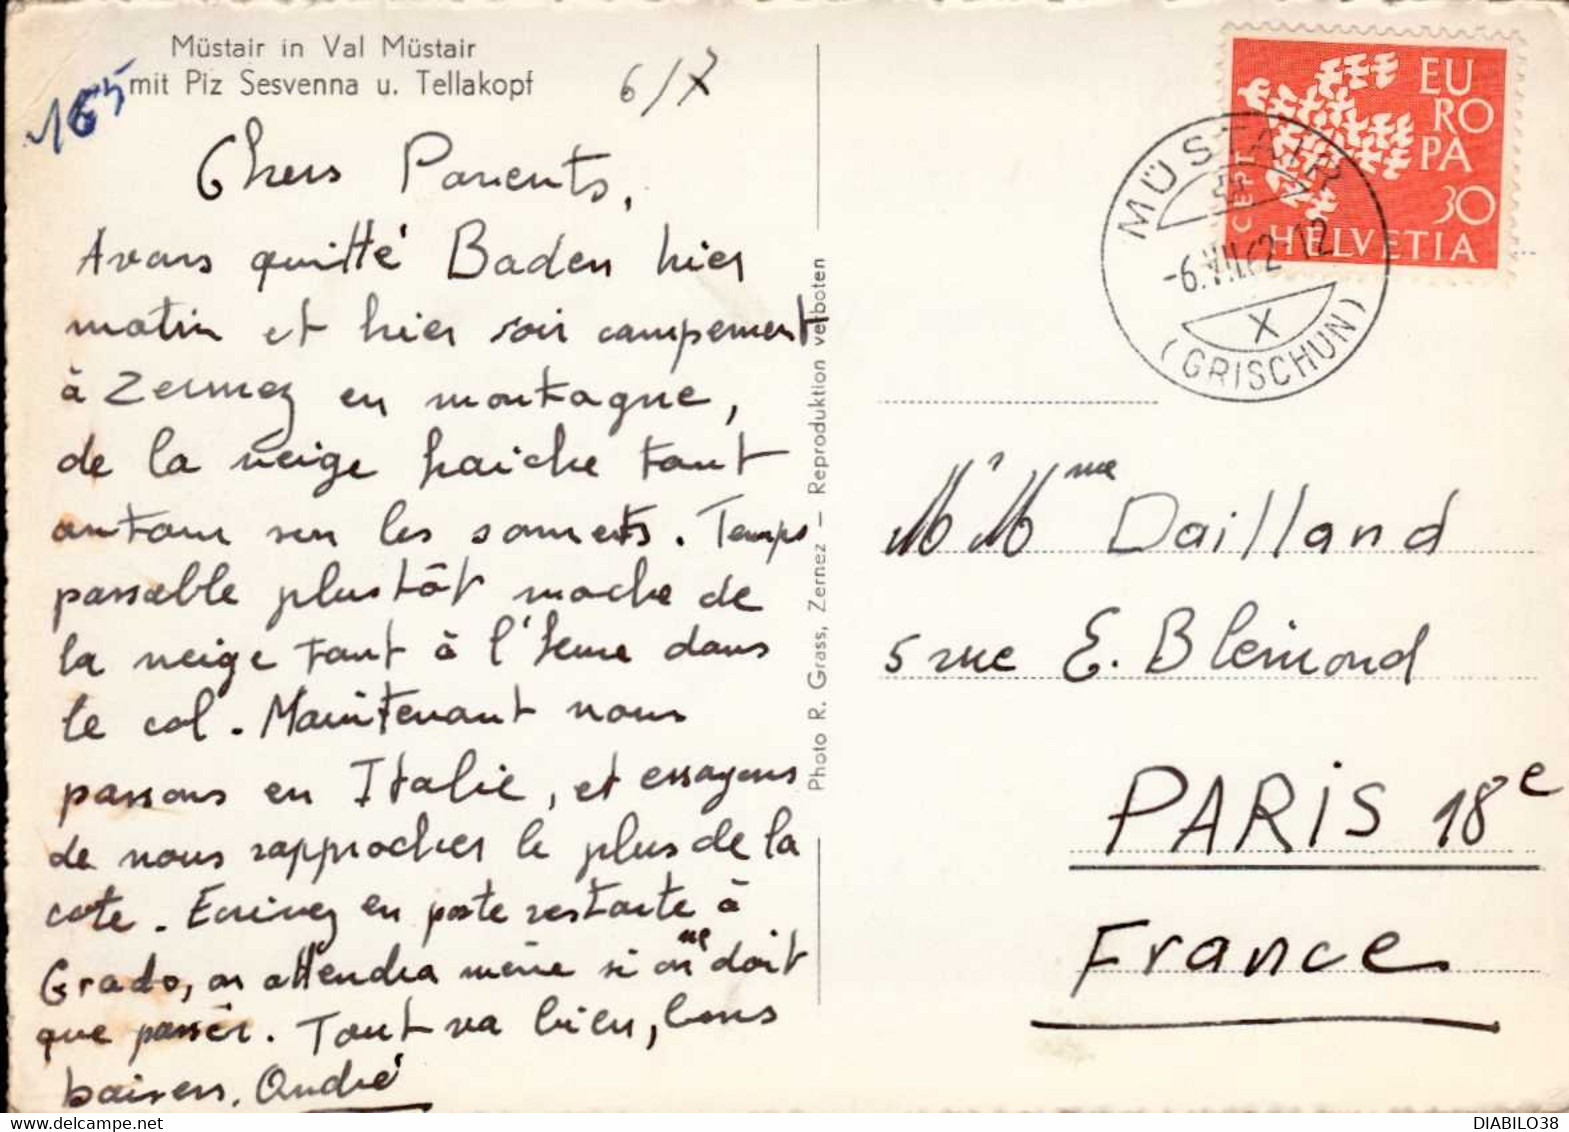 Müstair in Val Müstair
mit Piz Sesvenna u. Tellakopf
165
6/7
Chers Parents,
Avons quitté Baden hier
matin et hier soir campement
à Zernez en montagne,
de la neige fraiche tout
autour sur les sommets. Temps
passable plustôt moche de
la neige tout à l'heure dans
le col. Maintenant nous
passons en Italie, et essayons
de nous rapprocher le plus de la
cote. Ecrivez en poste restante à
Grado, on attendra même si on ne doit
que passer. Tout va bien, bons
baisers. André
Photo R. Grass, Zernez — Reproduktion verboten
EU
RO
PA
30
CEPT
HELVETIA
MÜSTAIR
-6.VII.62-12
X
(GRISCHUN)
Mr Mme Dailland
5 rue E. Blemond
PARIS 18e
France
DIABILO38